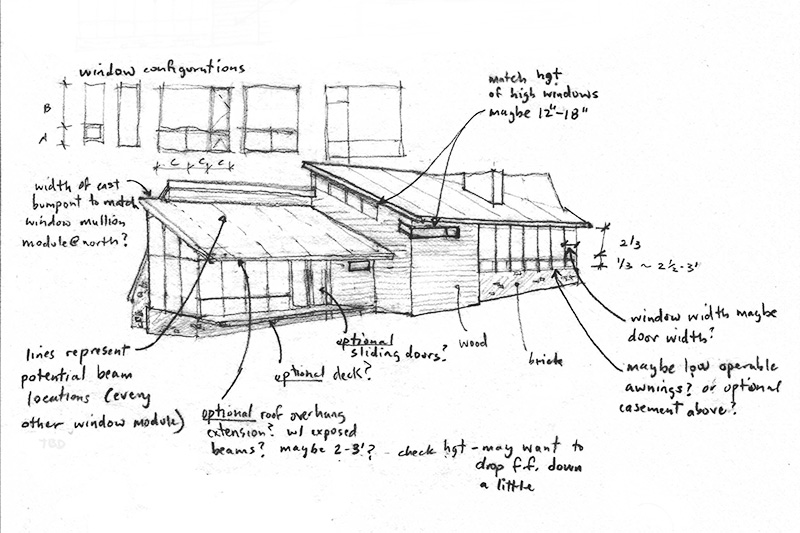 window configurations
B
A
C C C
match hgt
of high windows
maybe 12"-18"
width of east
bumpout to match
window mullion
module@north?
2/3
1/3 ~ 2 1/2-3'
window width maybe
door width?
maybe low operable
awnings? or optional
casement above?
wood
brick
optional
sliding doors?
optional deck?
lines represent
potential beam
locations (every
other window module)
optional roof overhang
extension? w/ exposed
beams? maybe 2-3'? - check hgt - may want to
drop f.f. down
a little